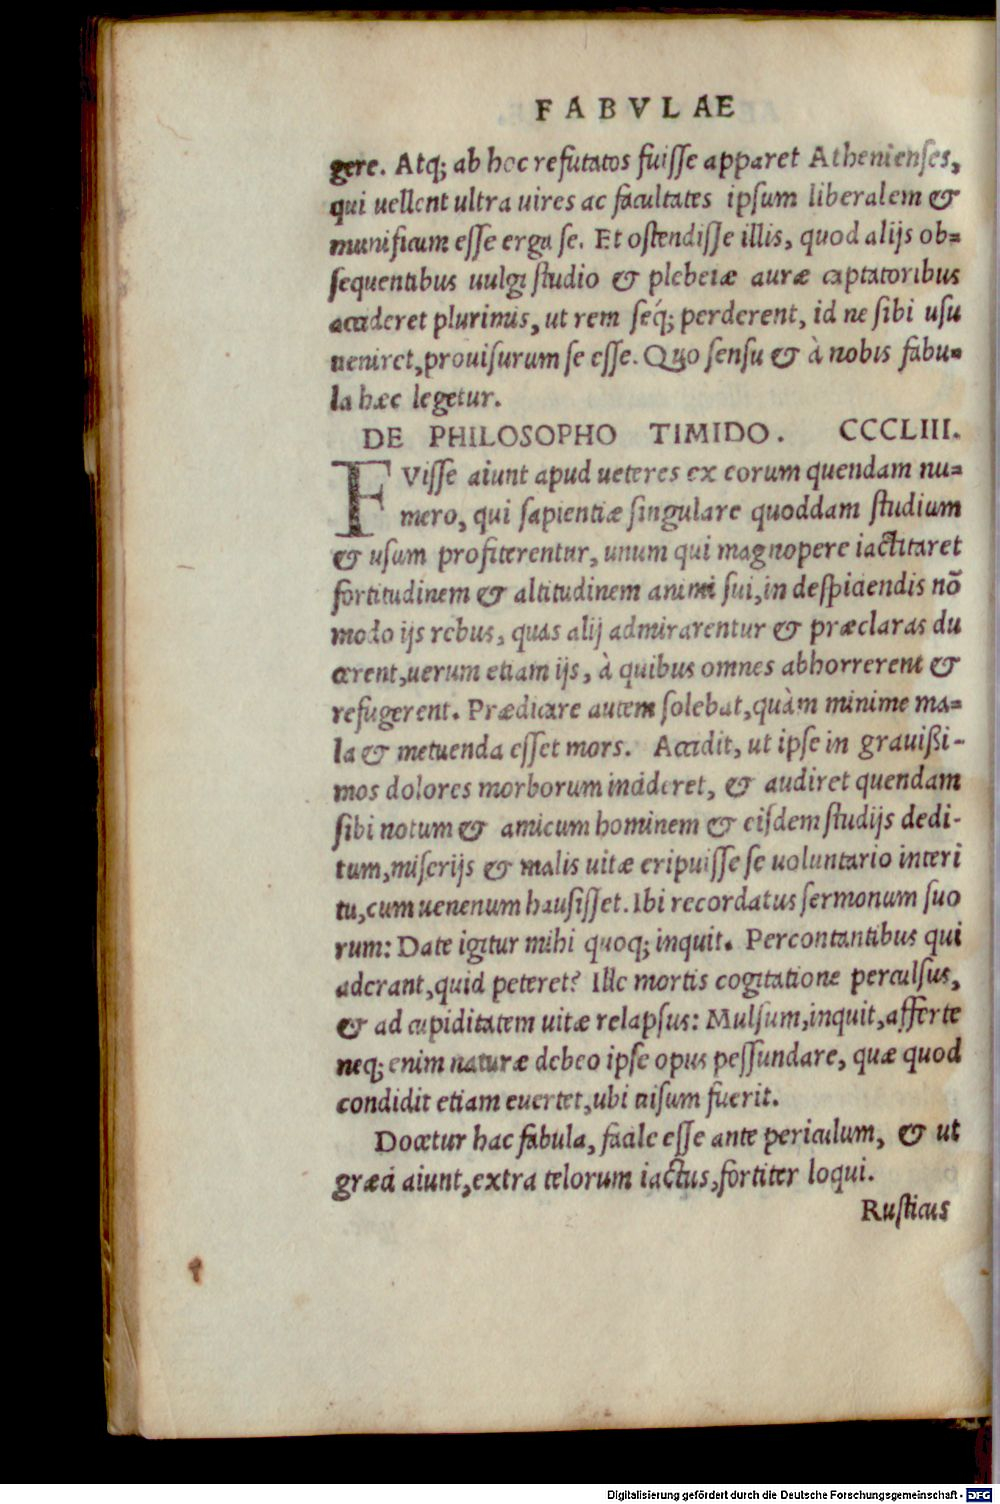 FABVLAE
gere. Atq; ab hoc refutatos fuisse apparet Athenienses,
qui uellent ultra uires ac facultates ipsum liberalem &
munificum esse erga se. Et ostendisse illis, quod alijs ob=
sequentibus uulgi studio & plebeiæ auræ captatoribus
accideret plurimis, ut rem séq; perderent, id ne sibi usu
ueniret, prouisurum se esse. Quo sensu & à nobis fabu=
la hæc legetur.
DE PHILOSOPHO TIMIDO. CCCLIII.
FVisse aiunt apud ueteres ex eorum quendam nu=
mero, qui sapientiæ singulare quoddam studium
& usum profiterentur, unum qui magnopere iactitaret
fortitudinem & altitudinem animi sui, in despiciendis nō
modo ijs rebus, quas alij admirarentur & præclaras du
cerent, uerum etiam ijs, à quibus omnes abhorrerent &
refugerent. Prædicare autem solebat, quàm minime ma=
la & metuenda esset mors. Accidit, ut ipse in grauißi-
mos dolores morborum incideret, & audiret quendam
sibi notum & amicum hominem & eisdem studijs dedi-
tum, miserijs & malis uitæ eripuisse se uoluntario interi
tu, cum uenenum hausisset. Ibi recordatus sermonum suo
rum: Date igitur mihi quoq; inquit. Percontantibus qui
aderant, quid peteret? Ille mortis cogitatione perculsus,
& ad cupiditatem uitæ relapsus: Mulsum, inquit, afferte
neq; enim naturæ debeo ipse opus pessundare, quæ quod
condidit etiam euertet, ubi uisum fuerit.
Docetur hac fabula, facile esse ante periculum, & ut
græci aiunt, extra telorum iactus, fortiter loqui.
Rusticus
Digitalisierung gefördert durch die Deutsche Forschungsgemeinschaft - DFG